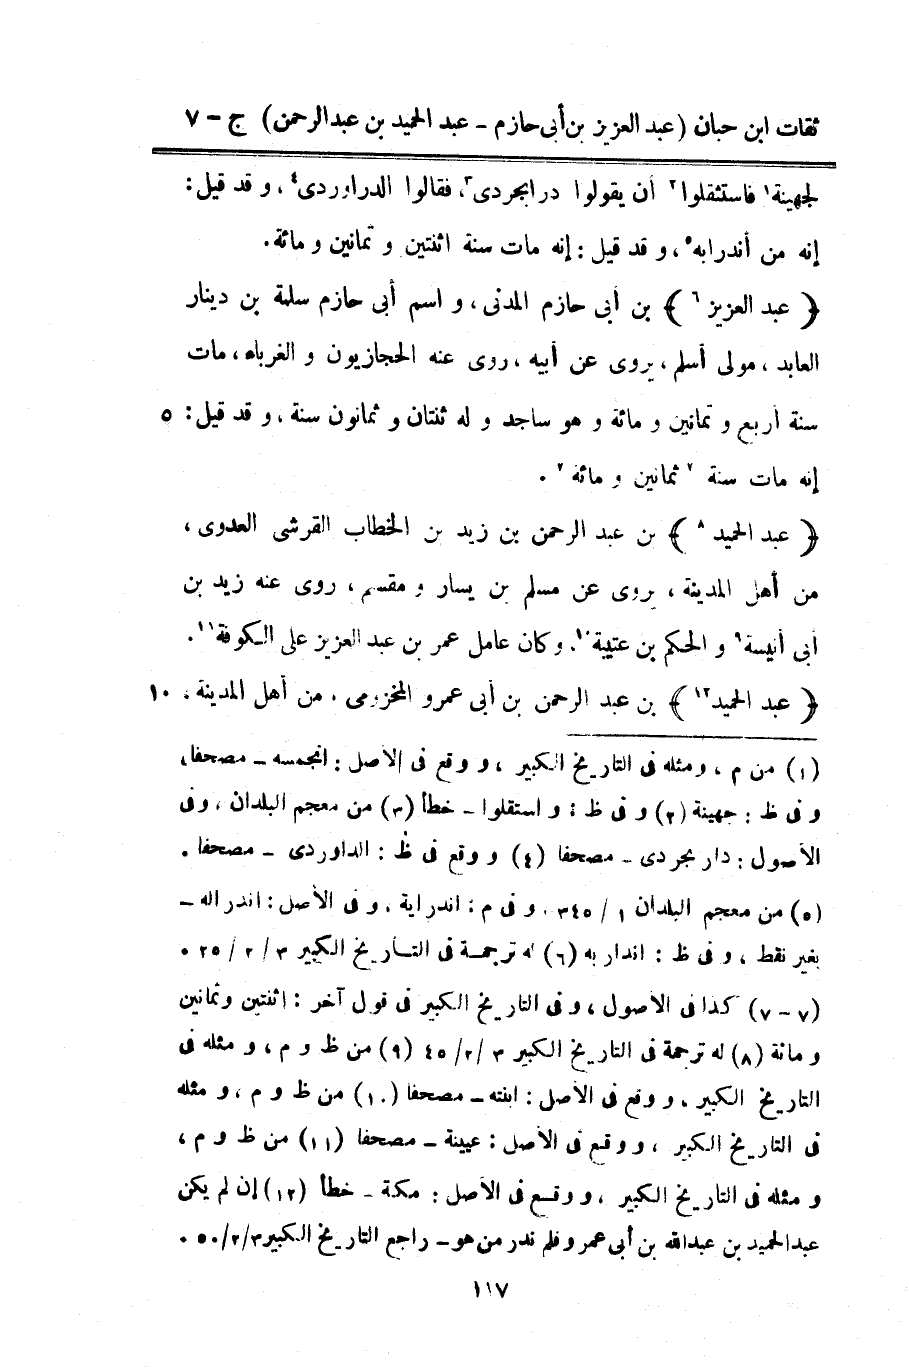 ثقات ابن حبان (عبد العزيز بن أبى حازم - عبد الحميد بن عبد الرحمن) ج - ٧
لجهينة١ فاستثقلوا٢ أن يقولوا درابجردى٣، فقالوا الدراوردى٤، و قد قيل:
إنه من أندرابه٥، و قد قيل: إنه مات سنة اثنتين و ثمانين و مائة.
﴿ عبد العزيز٦ ﴾ بن أبى حازم المدنى، و اسم أبى حازم سلمة بن دينار
العابد، مولى أسلم، يروى عن أبيه، روى عنه الحجازيون و الغرباء، مات
سنة أربع و ثمانين و مائة و هو ساجد و له ثنتان و ثمانون سنة، و قد قيل: ٥
إنه مات سنة ٧ ثمانين و مائة ٧.
﴿ عبد الحميد٨ ﴾ بن عبد الرحمن بن زيد بن الخطاب القرشى العدوى،
من أهل المدينة، يروى عن مسلم بن يسار و مقسم، روى عنه زيد بن
أبى أنيسة٩ و الحكم بن عتيبة١٠. وكان عامل عمر بن عبد العزيز على الكوفة١١.
﴿ عبد الحميد١٢ ﴾ بن عبد الرحمن بن أبى عمرو المخزومى، من أهل المدينة، ١٠
(١) من م، ومثله فى التاريخ الكبير، و وقع فى الأصل: انجمسه - مصحفا،
و فى ظ: جهينة (٢) و فى ظ: و استقلوا - خطأ (٣) من معجم البلدان، وفى
الأصول: دار بجردى - مصحفا (٤) و وقع فى ظ: الداوردى - مصحفا.
(٥) من معجم البلدان ١ / ٣٤٥، و فى م: اندراية، و فى الأصل: اندراله -
بغير نقط، و فى ظ: اندار به (٦) له ترجمة فى التاريخ الكبير ٣ / ٢ / ٢٥.
(٧ - ٧) كذا فى الأصول، و فى التاريخ الكبير فى قول آخر: اثنتين وثمانين
و مائة (٨) له ترجمة فى التاريخ الكبير ٣ / ٢ / ٤٥ (٩) من ظ و م، و مثله فى
التاريخ الكبير، و وقع فى الأصل: ابنته - مصحفا (١٠) من ظ و م، و مثله
فى التاريخ الكبير، و وقع فى الأصل: عيينة - مصحفا (١١) من ظ و م،
و مثله فى التاريخ الكبير، و وقع فى الأصل: مكة - خطأ (١٢) إن لم يكن
عبد الحميد بن عبد الله بن أبى عمر و فلم ندر من هو - راجع التاريخ الكبير ٣/٢/٥٠.
١١٧